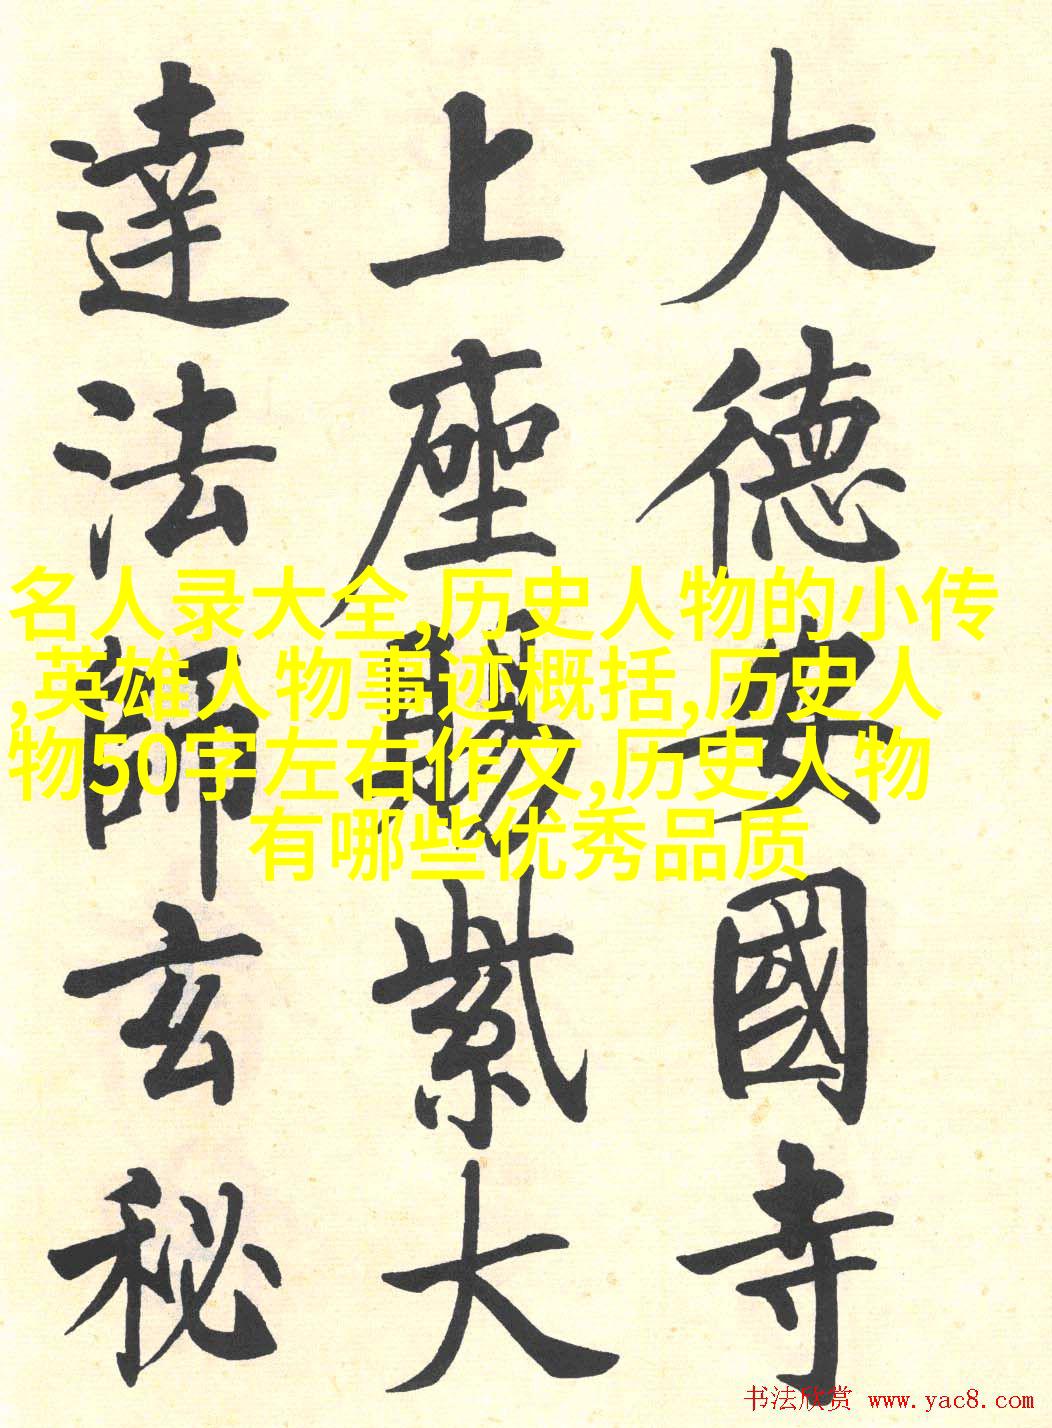 大德安國寺
上座賜紫大
達法師玄秘
名人录大全,历史人物的小传
,英雄人物事迹概括,历史人
物50字左右作文,历史人物
有哪些优秀品质
书法欣赏 www.yac8.com